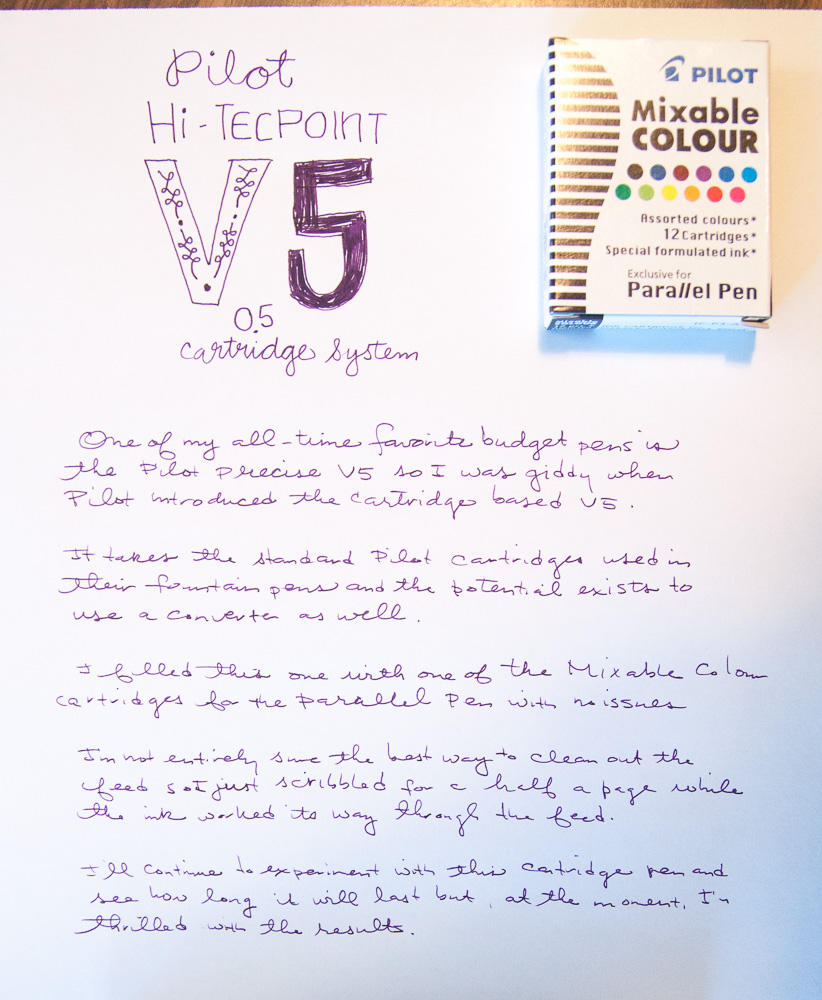 Pilot
Hi-TECPOINT
V5
0.5
cartridge system
PILOT
Mixable
COLOUR
Assorted colours*
12 Cartridges*
Special formulated ink*
Exclusive for
Parallel Pen
One of my all-time favorite budget pens is
the Pilot Precise V5 so I was giddy when
Pilot introduced the cartridge based V5.
It takes the standard Pilot cartridges used in
their fountain pens and the potential exists to
use a converter as well.
I filled this one with one of the Mixable Colour
cartridges for the Parallel Pen with no issues
I'm not entirely sure the best way to clean out the
feed so I just scribbled for a half a page while
the ink worked its way through the feed.
I'll continue to experiment with this cartridge pen and
see how long it will last but, at the moment, I'm
thrilled with the results.